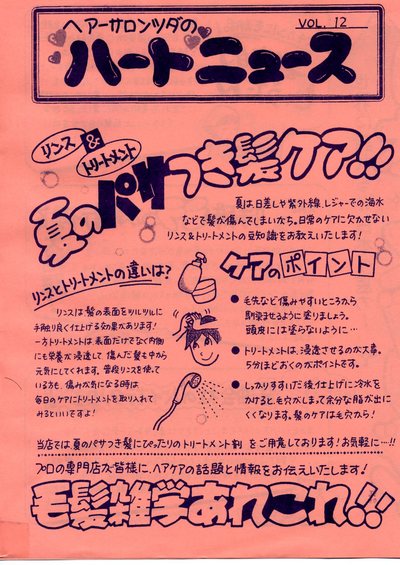 ヘアーサロンツダの
VOL. 12
ハートニュース
リンス&トリートメント
夏のパサつき髪ケア!!
夏は、日差しや紫外線、レジャーでの海水
などで髪が傷んでしまいがち。日常のケアに欠かせない
リンス&トリートメントの豆知識をお教えいたします!
リンスとトリートメントの違いは?
リンスは髪の表面をツルツルに
手触り良く仕上げる効果があります!
一方トリートメントは表面だけでなく内側
にも栄養が浸透して傷んだ髪も中から
元気にしてくれます。普段リンスを使って
いる方も、痛みが気になる時は
毎日のケアにトリートメントを取り入れて
みるといいですよ!
ケアのポイント
● 毛先など傷みやすいところから
馴染ませるように塗りましょう。
頭皮には塗らないように…
● トリートメントは、浸透させるのが大事。
5分ほどおくのがポイントです。
● しっかりすすいだ後、仕上げに冷水を
かけると、毛穴がしまって余分な脂が出に
くくなります。髪のケアは毛穴から!
当店では夏のパサつき髪にぴったりのトリートメント剤をご用意しております!お気軽に…!!
プロの専門店が皆様に、ヘアケアの話題と情報をお伝えいたします!
毛髪雑学あれこれ!!